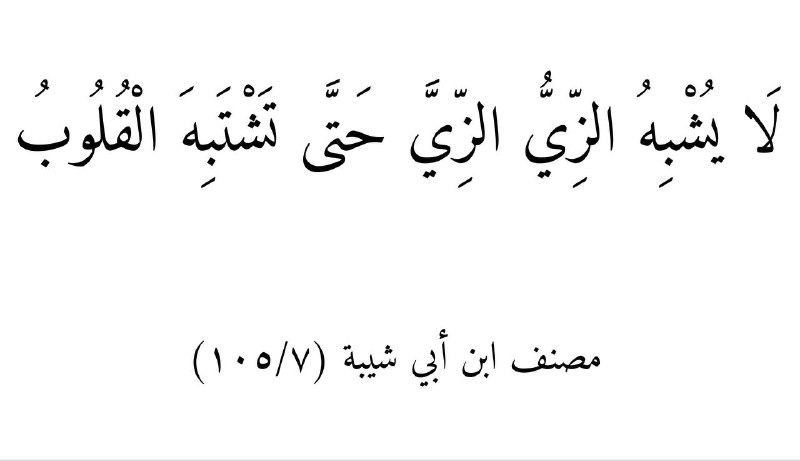 لَا يُشْبِهُ الزِّيُّ الزِّيَّ حَتَّى تَشْتَبِهَ الْقُلُوبُ
مصنف ابن أبي شيبة (١٠٥/٧)